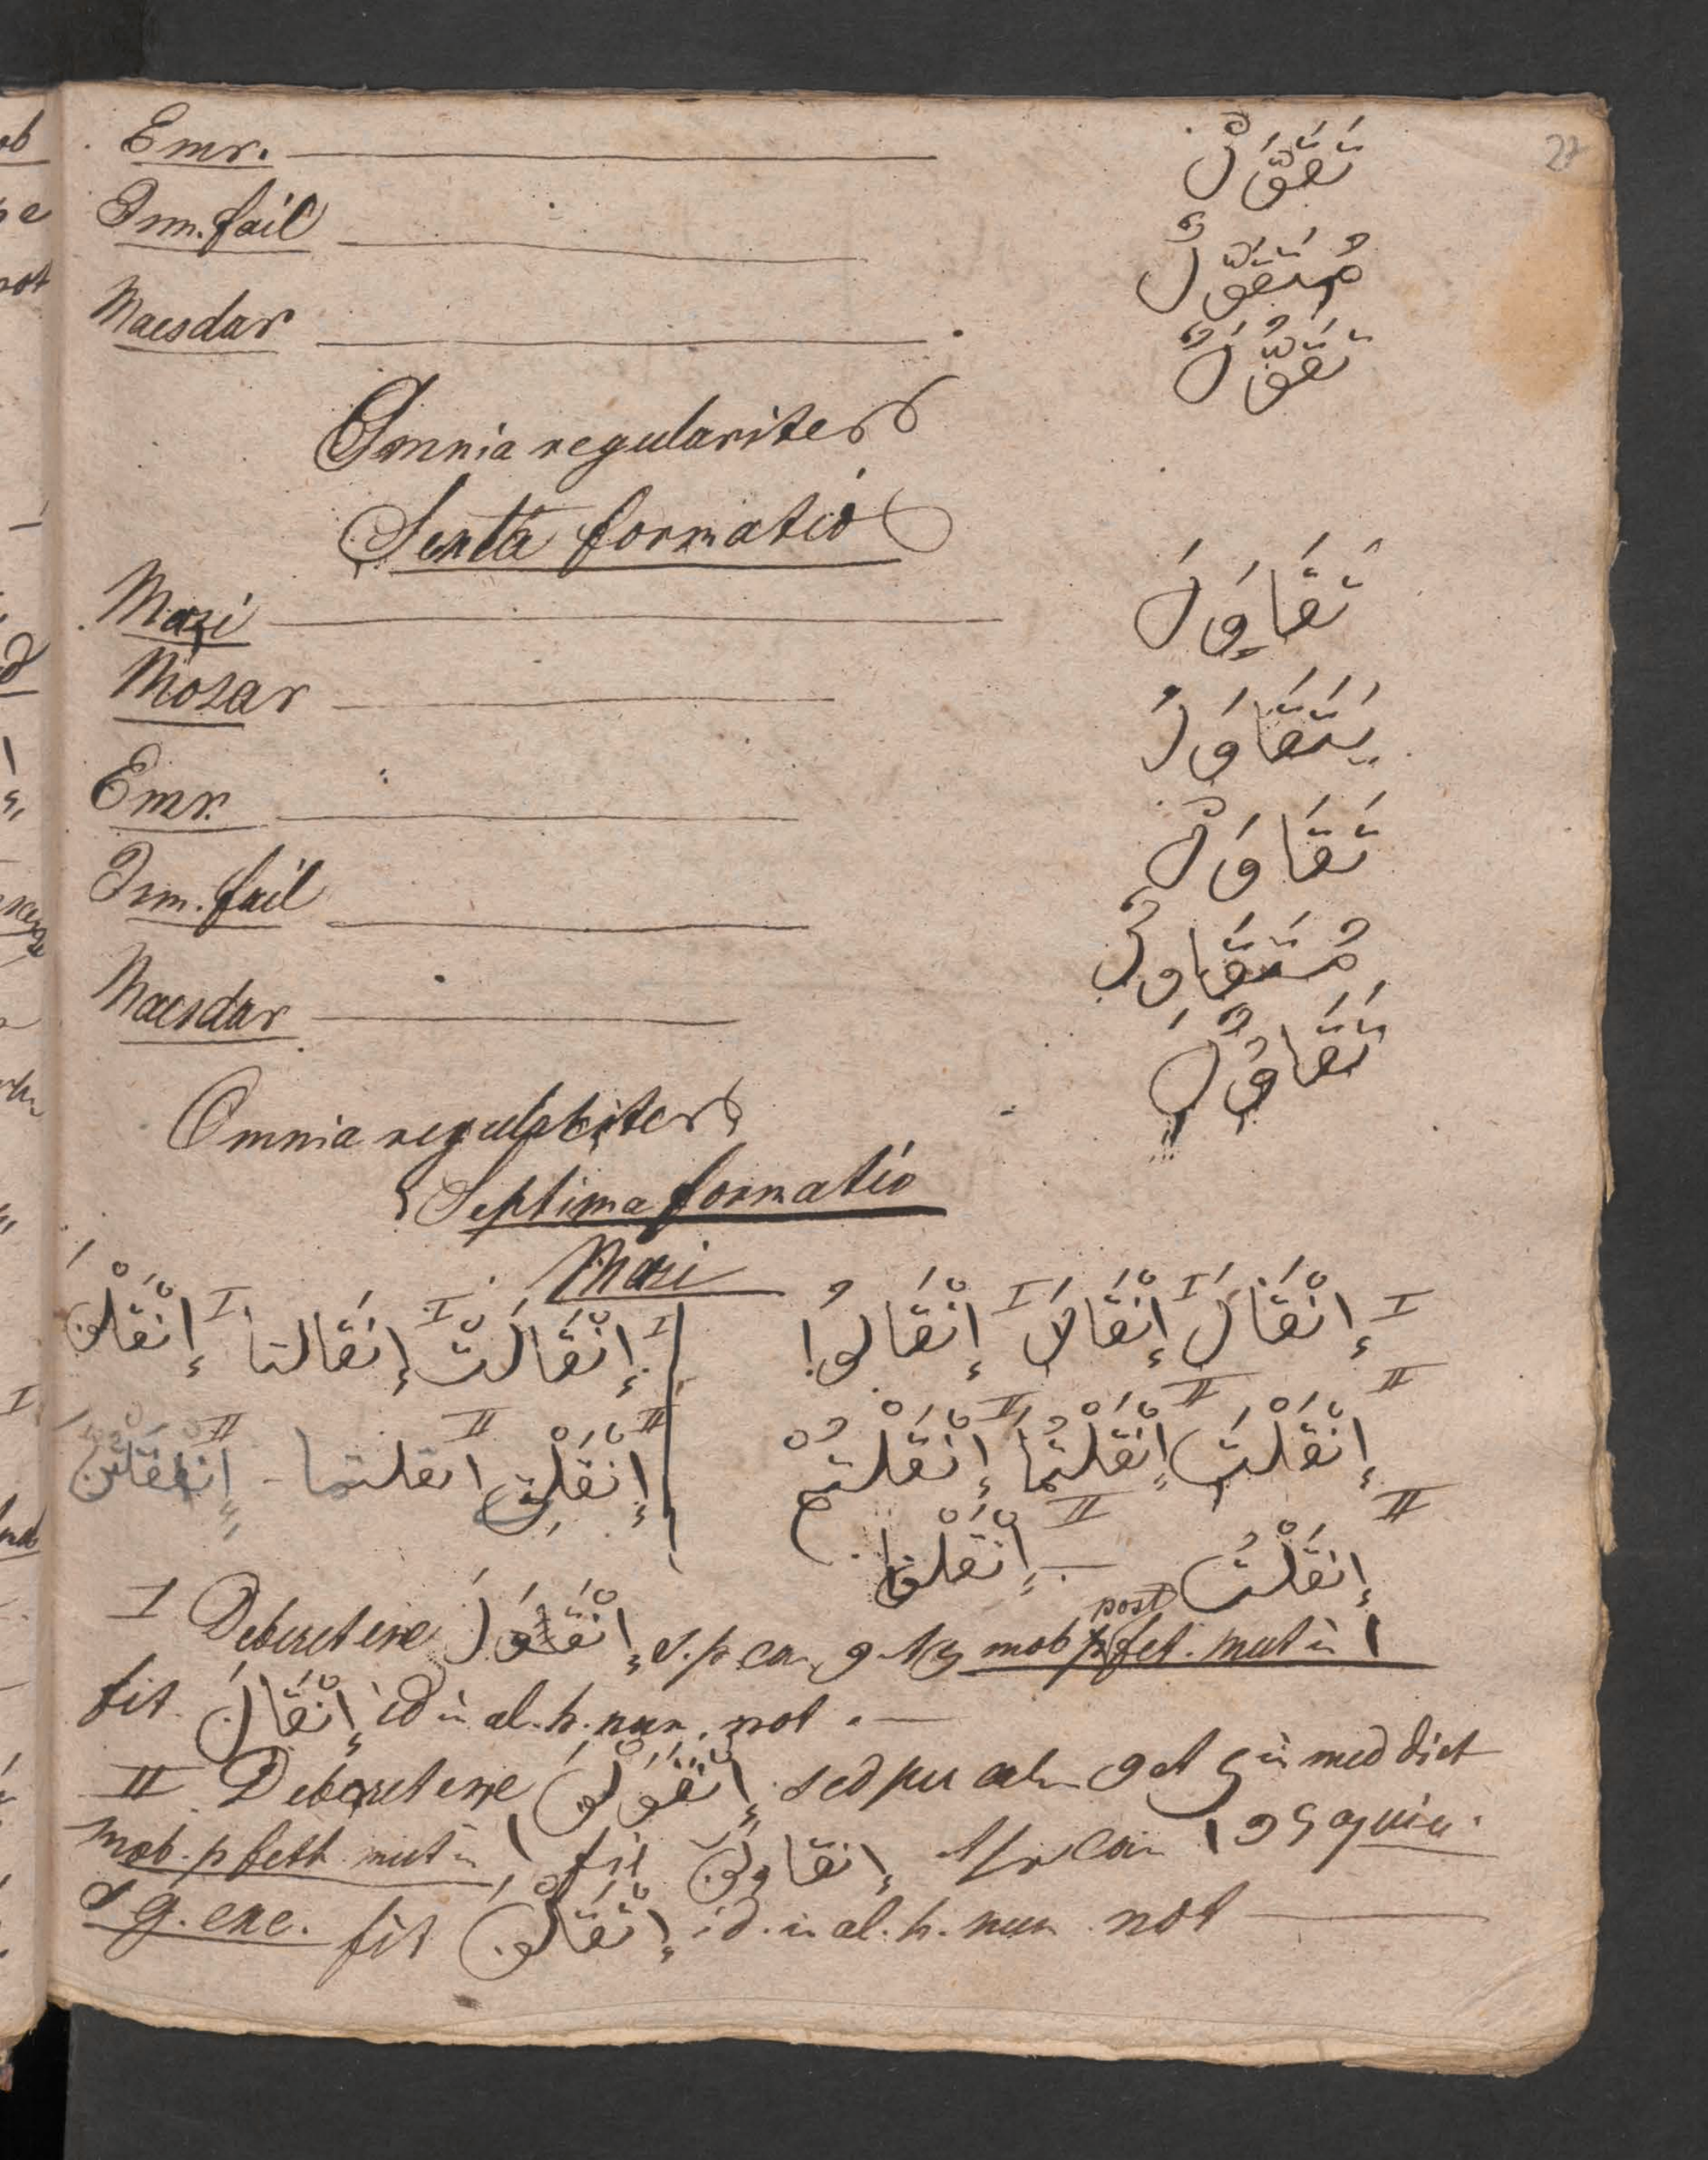 27
Emr. تَقَوَّلْ
Ism. fail مُتَقَوِّلٌ
Maesdar تَقَوُّلٌ
Omnia regulariter
Sexta formatio
Mazi تَقَاوَلَ
Mozar يَتَقَاوَلُ
Emr. تَقَاوَلْ
Ism. fail مُتَقَاوِلٌ
Maesdar تَقَاوُلٌ
Omnia regulariter
Septima formatio
Mazi
I إِنْقَالَ I إِنْقَالَا I إِنْقَالُوا I إِنْقَالَتْ I إِنْقَالتا I إِنْقَلْنَ
II إِنْقَلْتَ II إِنْقَلْتُمَا II إِنْقَلْتُمْ II إِنْقَلْتِ II انقلتما - II
II إِنقَلْتُ — II إِنْقَلْنا
I Deberet esse إِنْقَوَلَ s. p ca و mob post fet. mut in ا
fit إِنْقَالَ id in al. h. nun. not. —
II Deberet esse إِنْقَوَلْنَ sed pu و et in med dict
mob. p feth mut in ا fit إنقاولن ا و quiu.
g. exc. fit إِنْقَلْنَ id. in al. h. nun not —